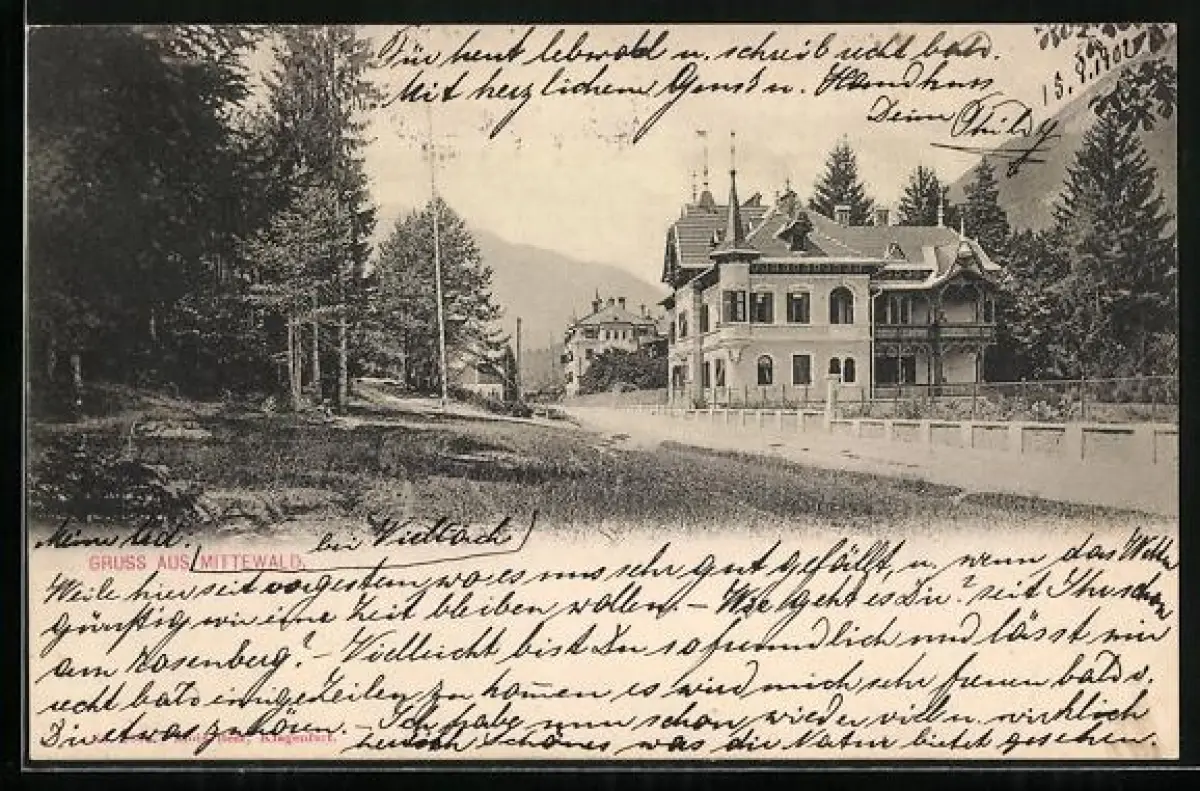 Für heut lebwohl u. schreib recht bald.
Mit herzlichem Gruß u. Handkuss
Dein
1902
Meine
bei Vielbach
GRUSS AUS MITTEWALD.
Weile hier seit vorgestern, wo es uns sehr gut gefällt, u. wenn das
günstig wir eine Zeit bleiben wollen. – Wie geht es Dir? seit Ihr schon
am Rosenberg? – Vielleicht bist Du so freundlich und lässt mir
recht bald einige Zeilen zu kommen es wird mich sehr freuen bald v.
Dir etwas zu hören. – Ich habe nun schon wieder viel u. wirklich
Klagenfurt.
Schönes was die Natur bietet gesehen.